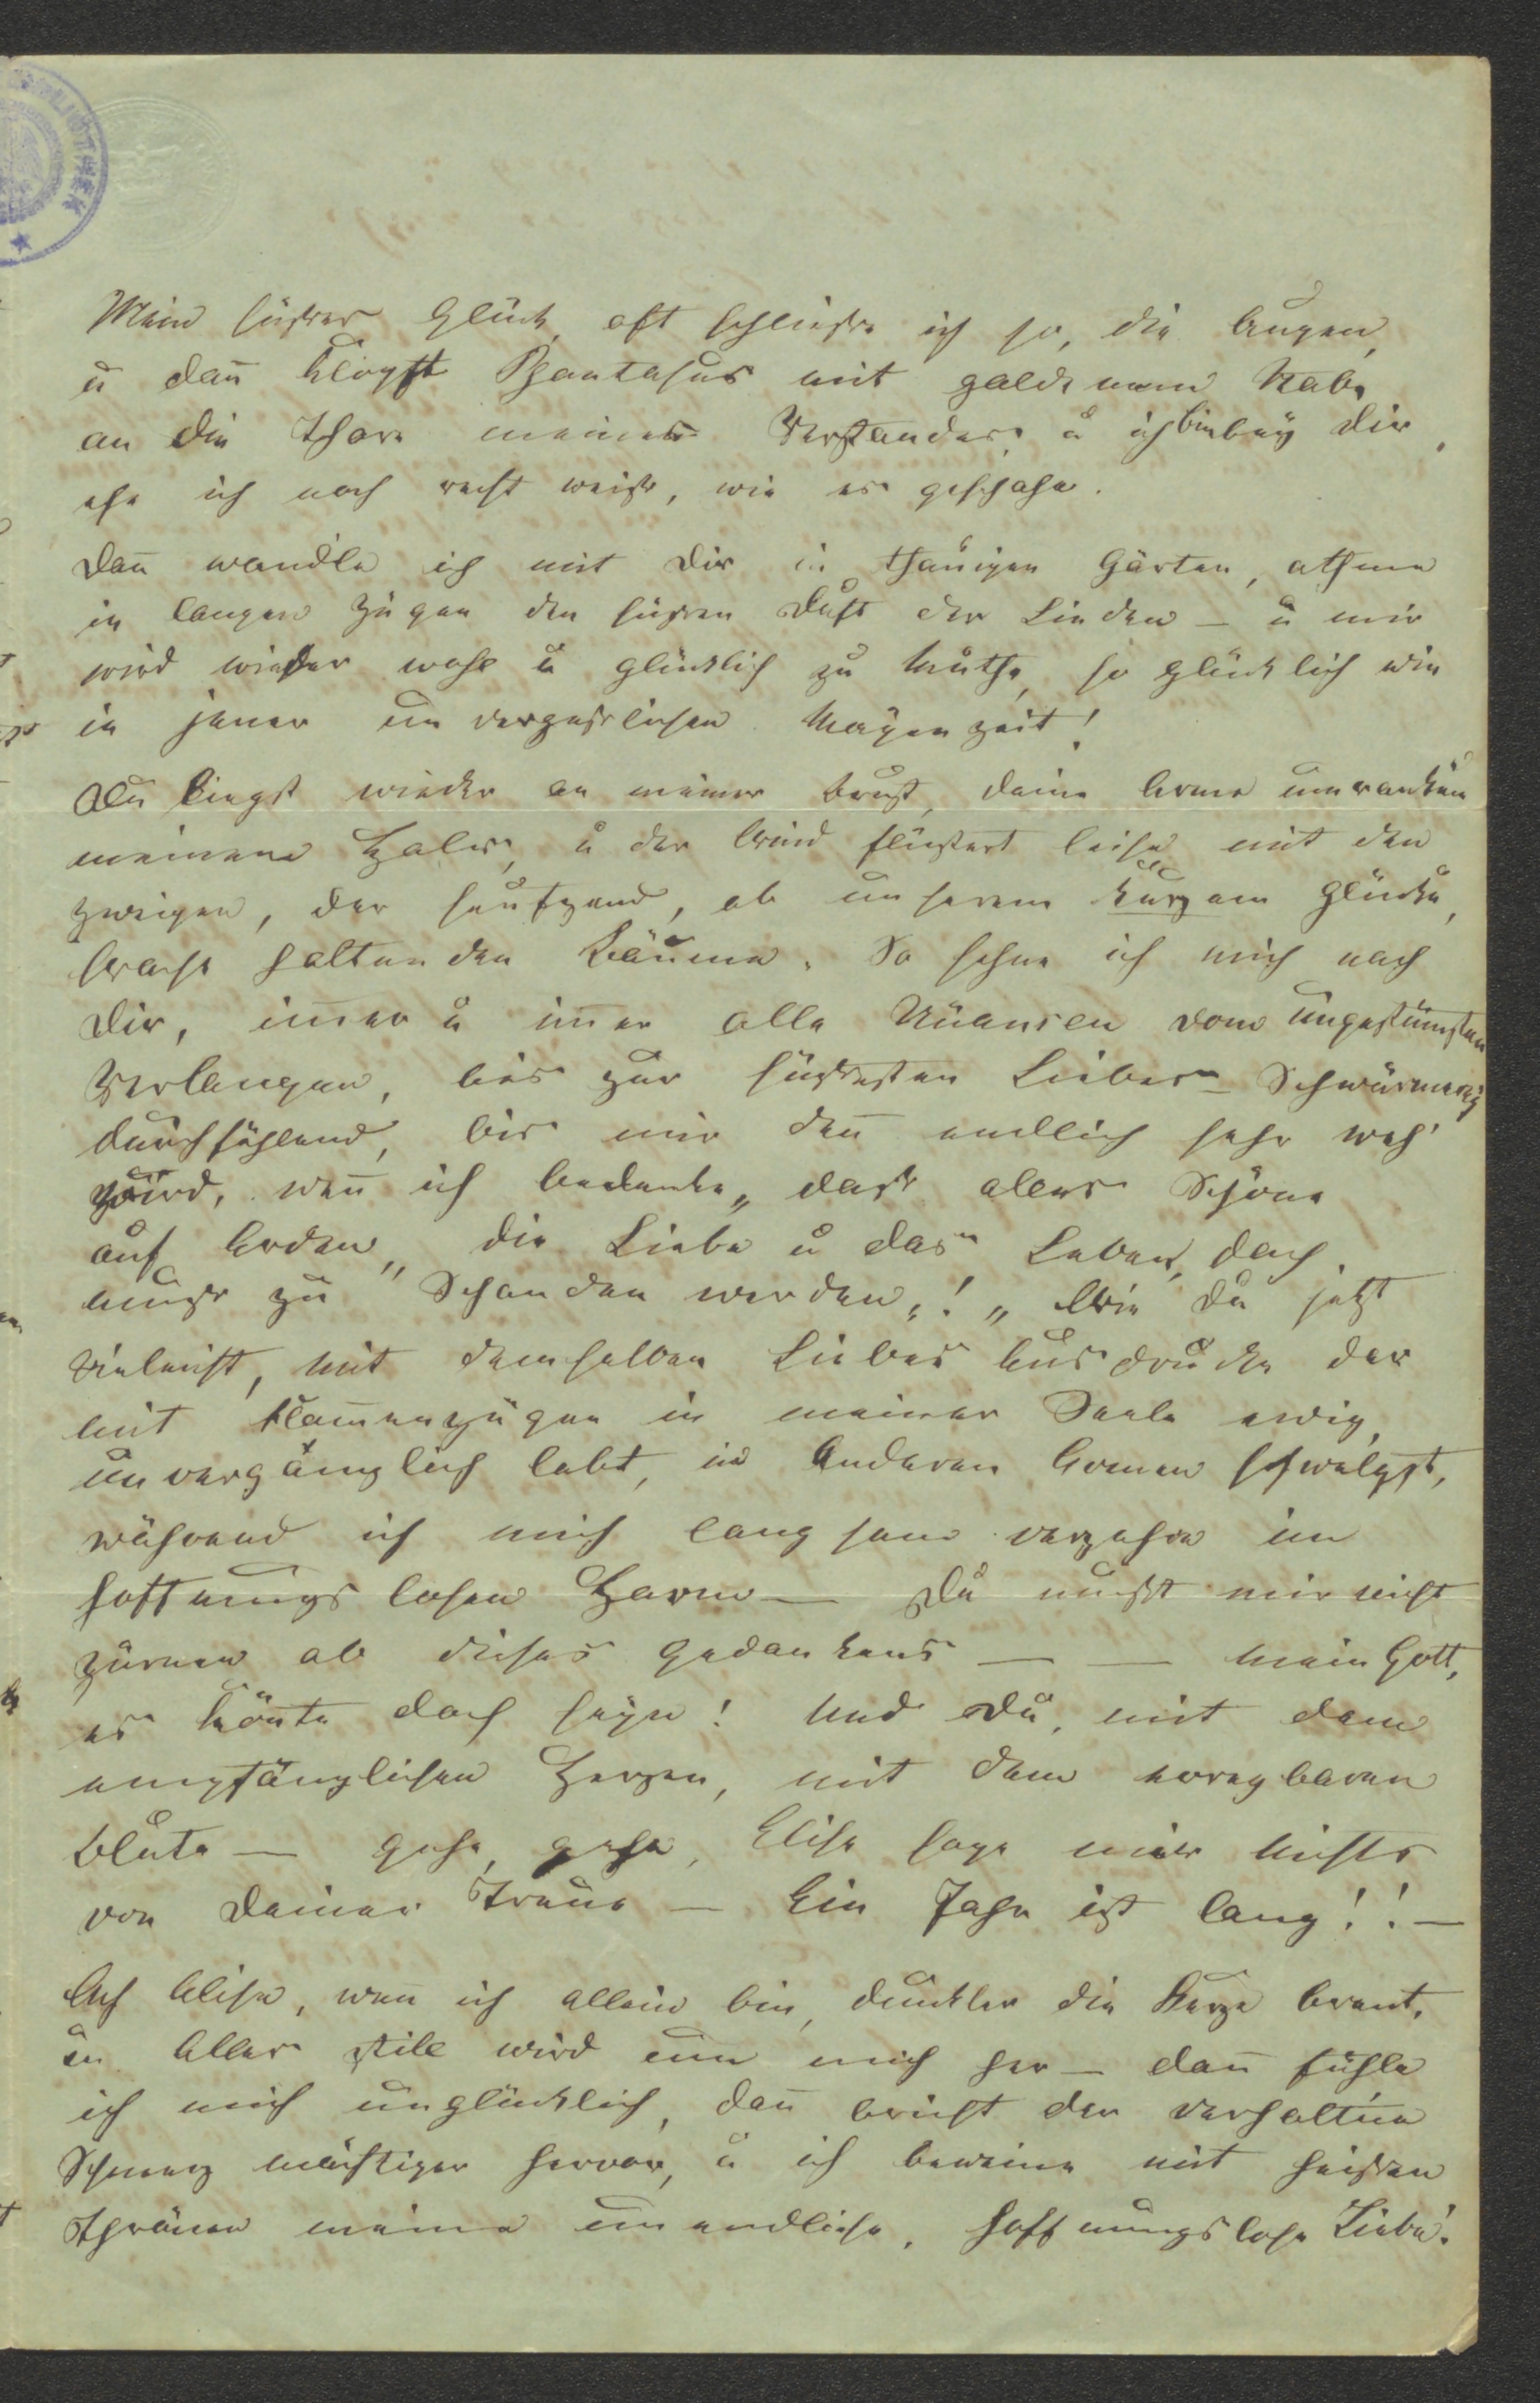 Mein süsses Glück, oft schliesse ich so, die Augen,
u dan̄ klopft Phantasus mit goldenem Stabe
an die Thore meines Verstandes, u ich bin bey Dir,
ehe ich noch recht weiss, wie es geschah.
Dan̄ wandle ich mit Dir in thauigen Gärten, athme
in langen Zügen den süssen Duft der Linden – u mir
wird wieder wohl u glücklich zu Muthe, so glücklich wie
in jener unvergesslichen Mayenzeit!
Du liegst wieder an meiner Brust, deine Arme umranken
meinen Hals, u der Wind flüstert leise mit den
Zweigen, der seufzend, ob unserem kurzem Glücke,
Wache haltenden Bäume. So sehne ich mich nach
Dir, im̄er u im̄er alle Nüancen vom ungestümsten
Verlangen, bis zur süssesten Liebes-Schwärmerey
durchfühlend, bis mir dan̄ endlich sehr weh'
wird, wen̄ ich bedenke „dass alles Schöne
auf Erden„ die Liebe u das Leben, doch
muss zu Schanden werden„! „Wie Du jetzt
vieleicht, mit demselben Liebes Ausdrucke der
mit Flam̄enzügen in meiner Seele ewig,
unvergänglich lebt, in Anderen Armen schwelgst,
während ich mich langsam verzehre im
hoffnungslosen Harm – Du musst mir nicht
zürnen ob dieses Gedankens – – mein Gott,
es kön̄te doch seyn! Und Du, mit dem
empfänglichen Herzen, mit dem erregbaren
Blute – gehe, gehe, Elise sage mir nichts
von Deiner Treue – Ein Jahr ist lang!! –
Ach Elise, wen̄ ich allein bin, dunkler die Kerze brent,
u Alles still wird um mich her – dan̄ fühle
ich mich unglücklich, dan̄ bricht der verhaltne
Schmerz mächtiger hervor, u ich beweine mit heissen
Thränen meine unendliche, hoffnungslose Liebe!